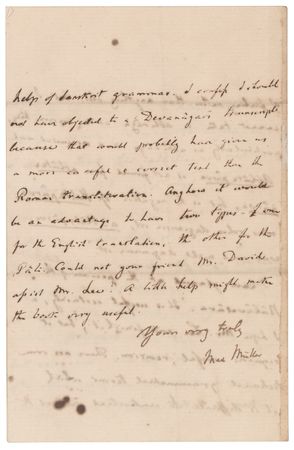 help of Sanskrit grammar. I confess I should
not have objected to a Devanâgari transcript
because that would probably have given us
a more careful & correct text than the
Roman transliteration. Anyhow it would
be an advantage to have two types - one
for the English translation, the other for the
Pâli. Could not your friend Mr. David
assist Mr. Lee? A little help might make
the book very useful.
Yours very truly
Max Müller